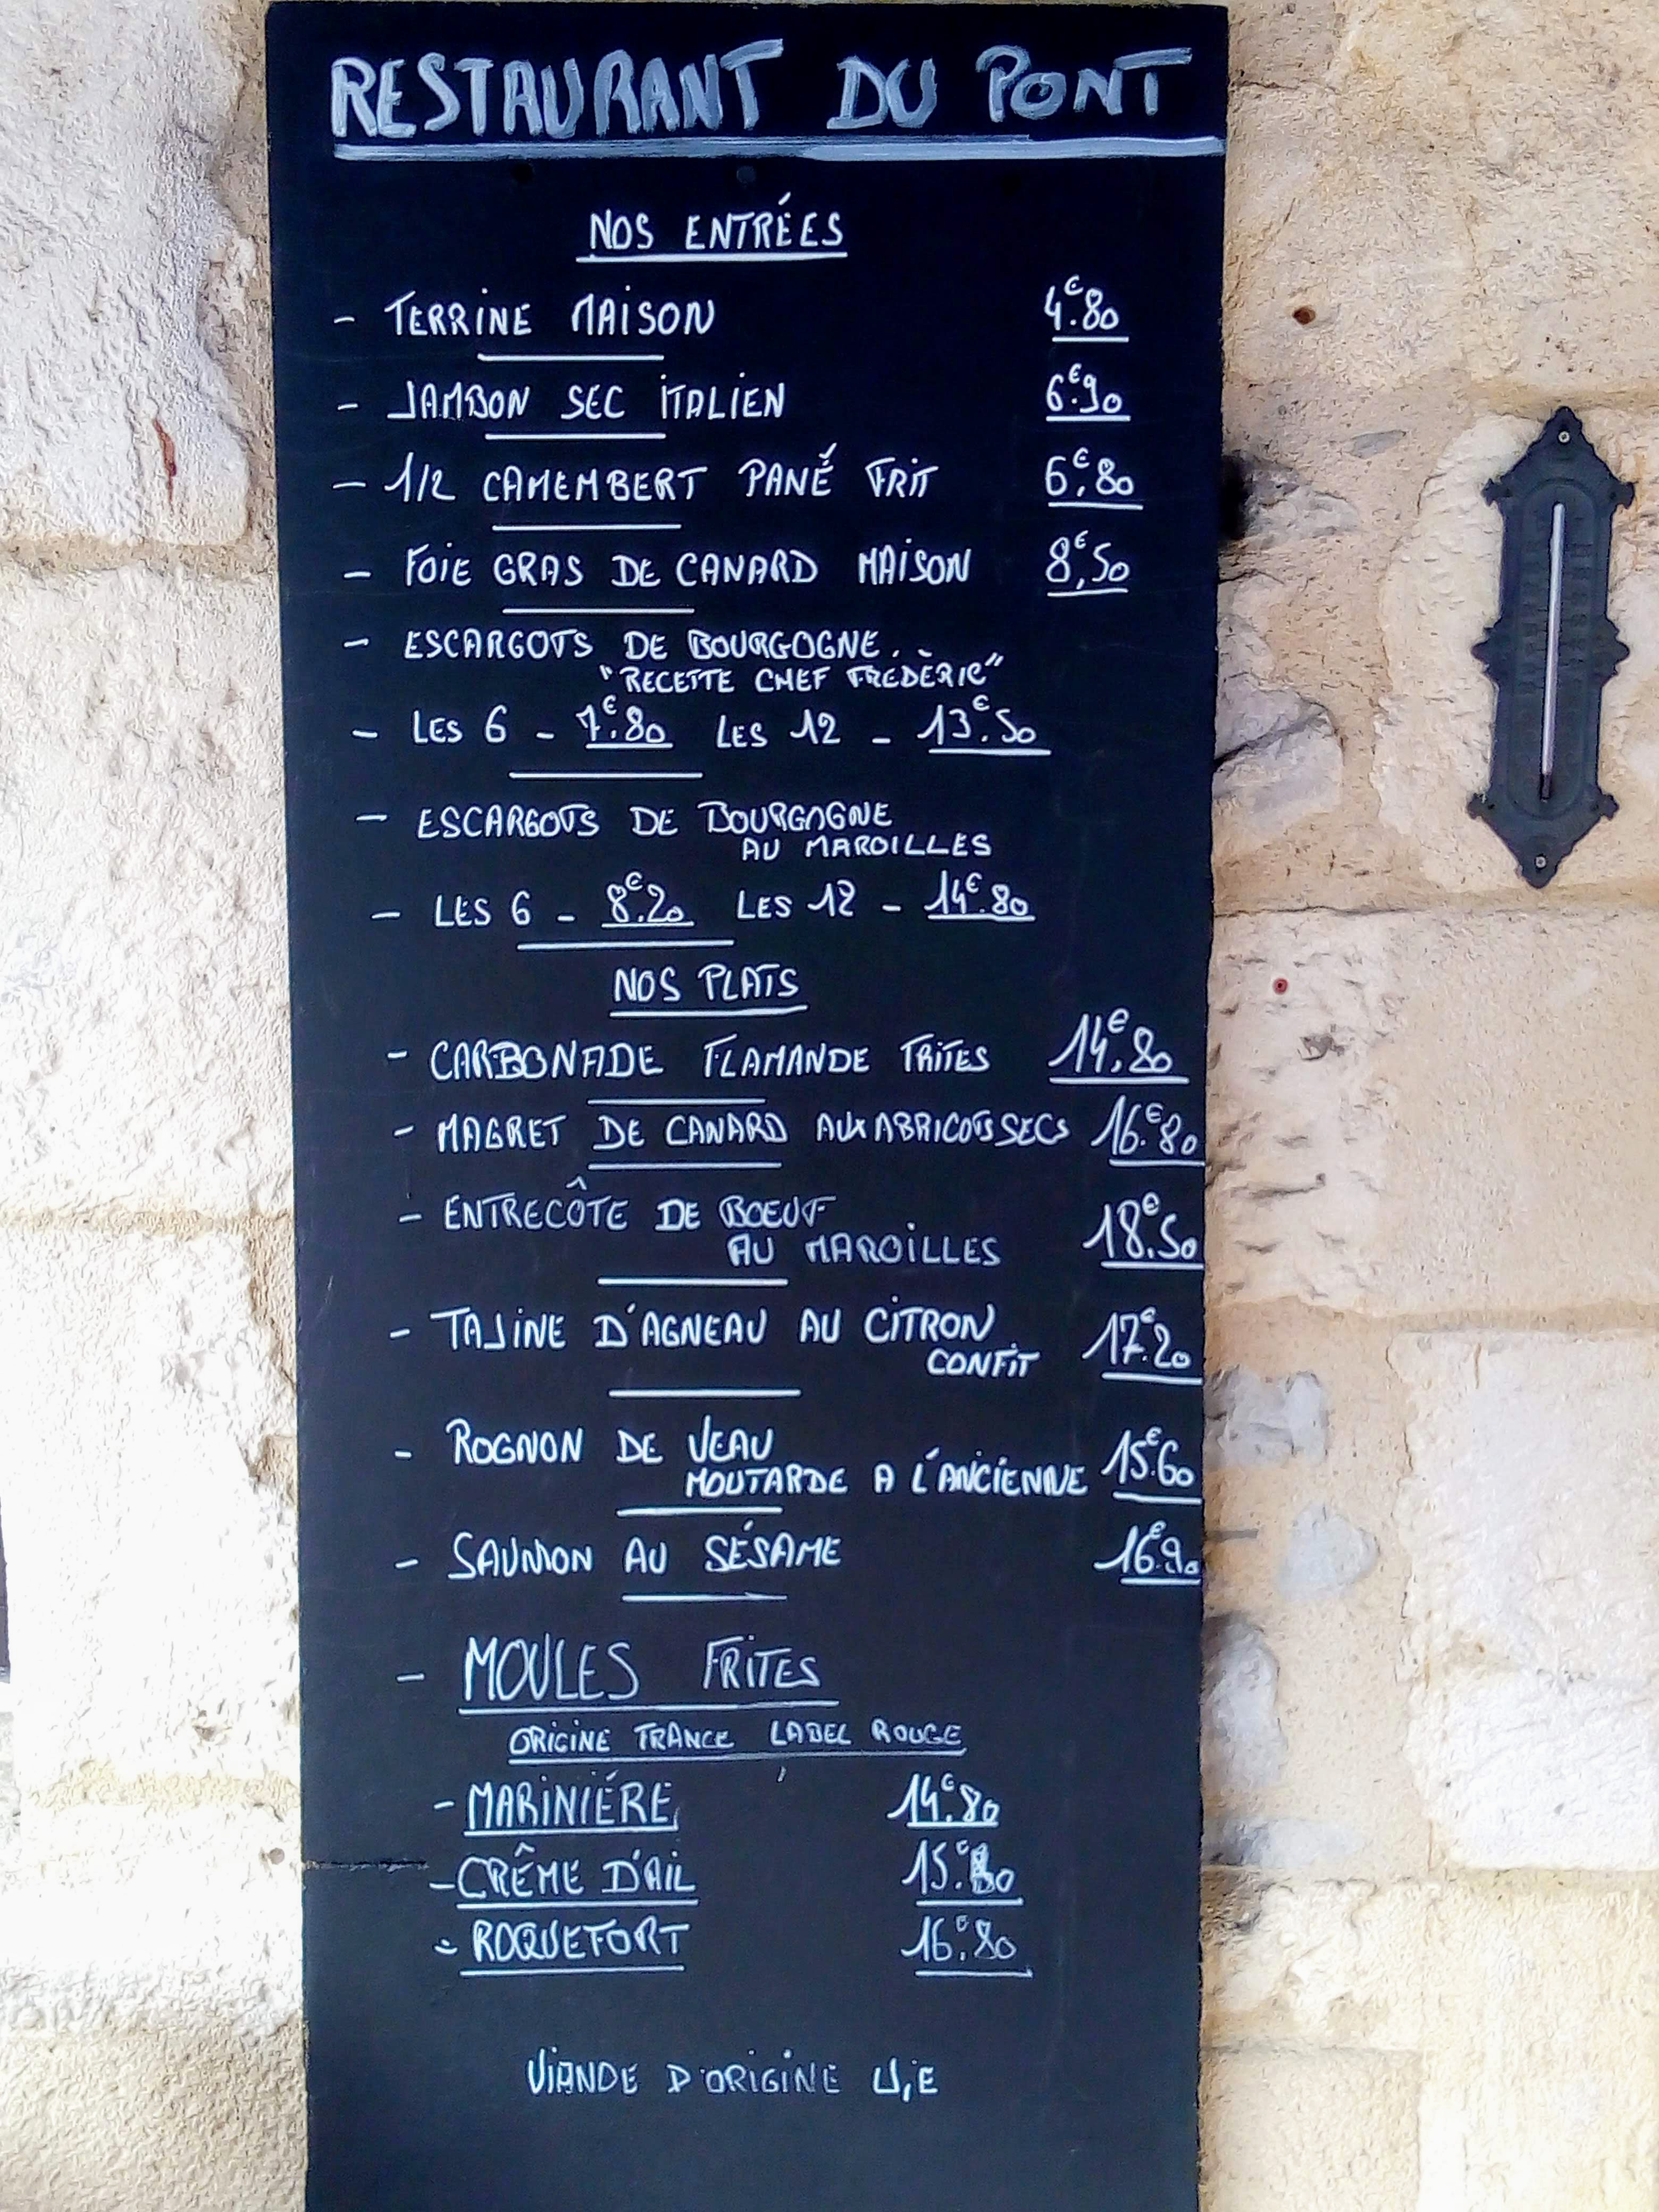 RESTAURANT DU PONT
NOS ENTRÉES
- TERRINE MAISON 4€.80
- JAMBON SEC ITALIEN 6€.90
- 1/2 CAMEMBERT PANÉ FRIT 6€,80
- FOIE GRAS DE CANARD MAISON 8€,50
- ESCARGOTS DE BOURGOGNE.
"RECETTE CHEF FRÉDÈRIC"
- LES 6 - 7€.80 LES 12 - 13€.50
- ESCARGOTS DE BOURGOGNE
AU MAROILLES
- LES 6 - 8€.20 LES 12 - 14€.80
NOS PLATS
- CARBONADE FLAMANDE FRITES 14€,80
- MAGRET DE CANARD AUX ABRICOTS SECS 16€.80
- ENTRECÔTE DE BOEUF
AU MAROILLES 18€.50
- TAJINE D'AGNEAU AU CITRON
CONFIT 17€.20
- ROGNON DE VEAU
MOUTARDE A L'ANCIENNE 15€.60
- SAUMON AU SÉSAME 16€.90
- MOULES FRITES
ORIGINE FRANCE LABEL ROUGE
- MARINIÉRE 14€.80
- CRÊME D'AIL
- ROQUEFORT 16€.80
VIANDE D'ORIGINE U,E